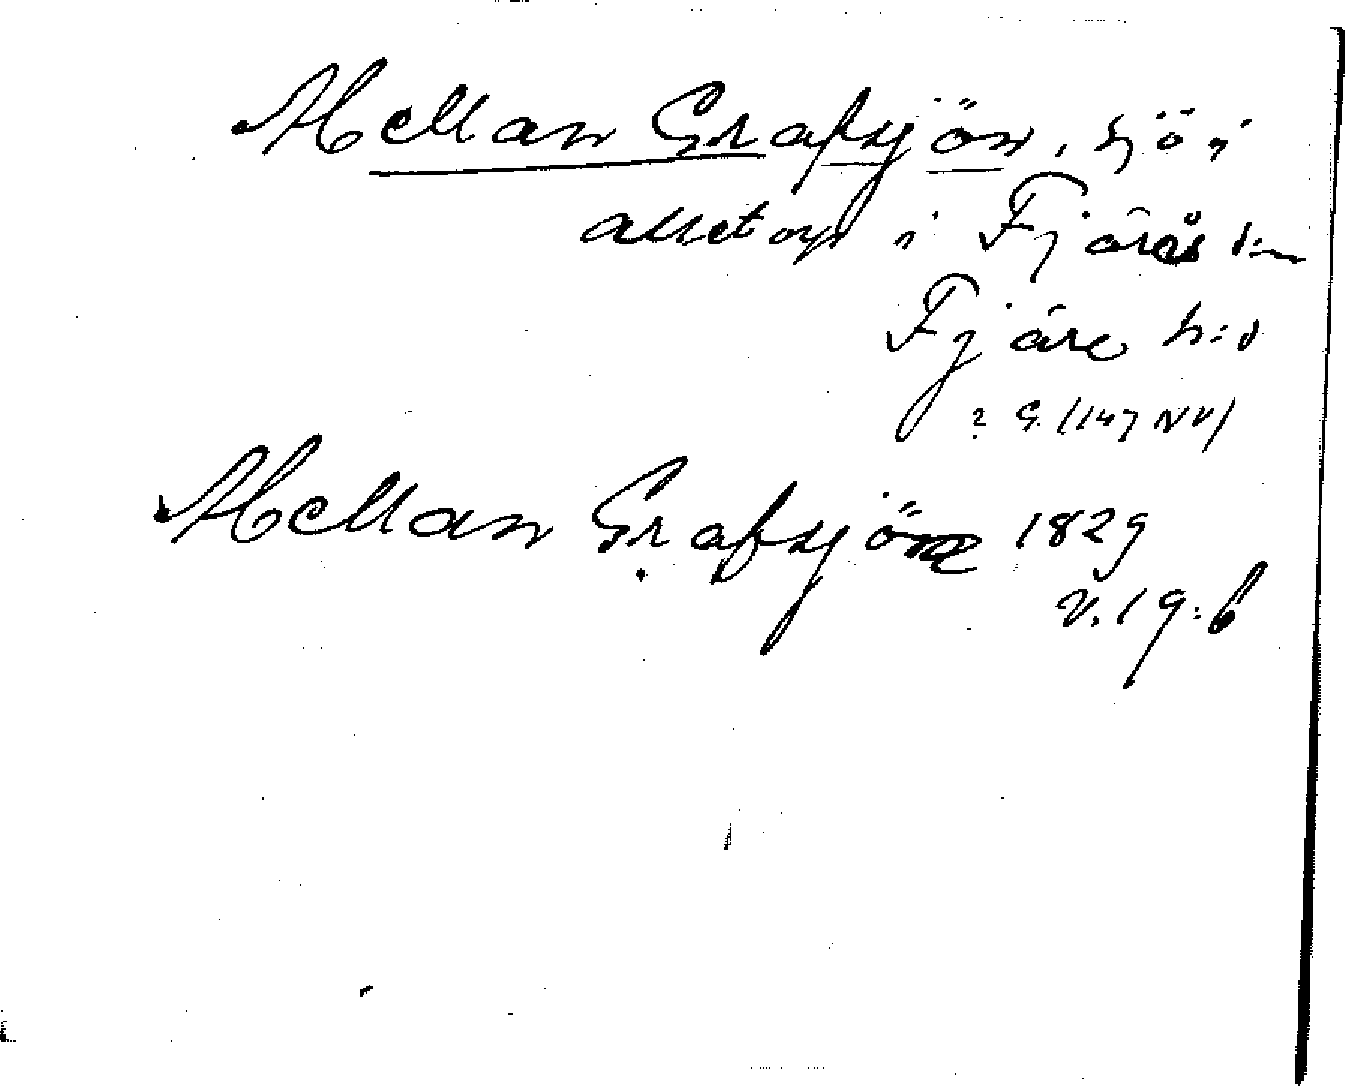 Mellan Grafsjön, sjö i
Alletorp i Fjärås s:n
Fjäre h:d
? G. (147 NV)
Mellan Grafsjön 1829
V. 19:6